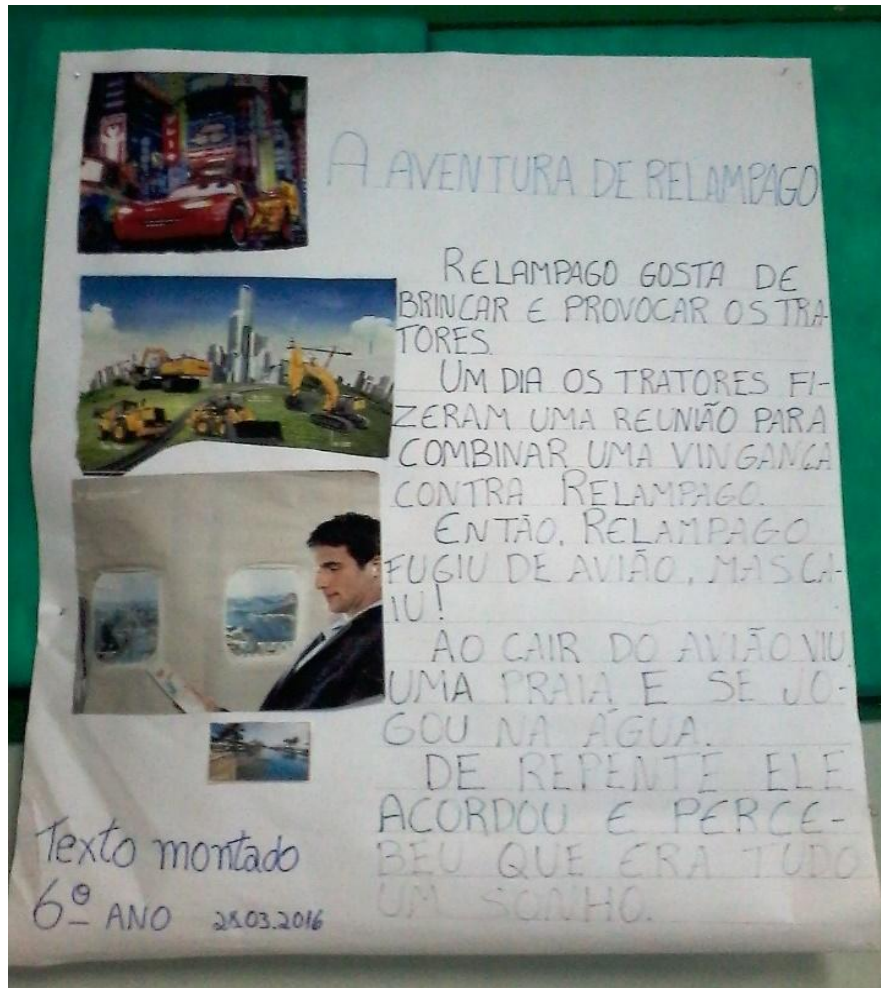 A AVENTURA DE RELAMPAGO
RELAMPAGO GOSTA DE
BRINCAR E PROVOCAR OS TRA-
TORES.
UM DIA OS TRATORES FI-
ZERAM UMA REUNIÃO PARA
COMBINAR UMA VINGANÇA
CONTRA RELAMPAGO.
ENTÃO, RELAMPAGO
FUGIU DE AVIÃO, MAS CA-
IU!
AO CAIR DO AVIÃO VIU
UMA PRAIA E SE JO-
GOU NA ÁGUA.
DE REPENTE ELE
ACORDOU E PERCE-
BEU QUE ERA TUDO
UM SONHO.
Texto montado
6º ANO 28.03.2016